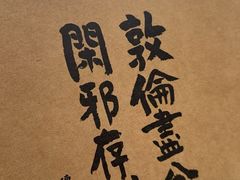 敦倫盡
閑邪存